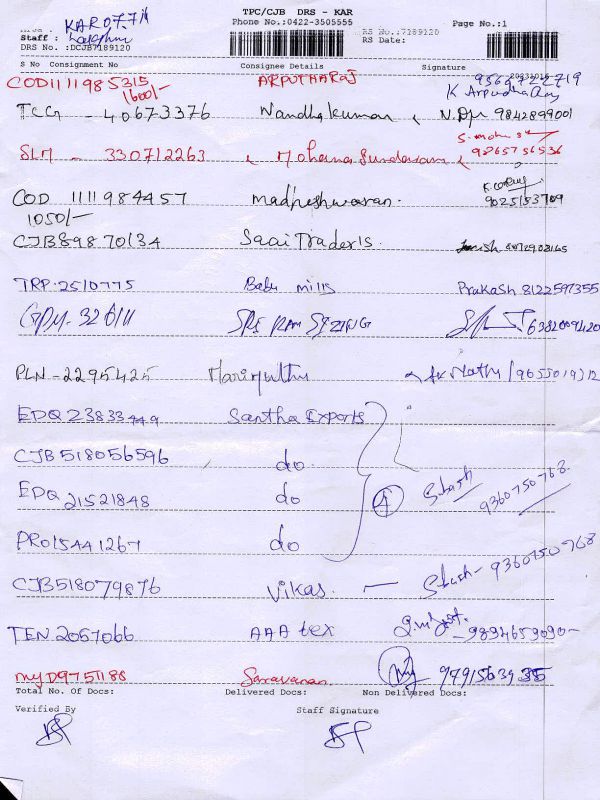 KAR0774
TPC/CJB DRS - KAR
Staff :
Phone No.:0422-3505555
RS No.:7189120
Page No.:1
DRS No. :DCJB7189120
RS Date:
S No Consignment No Consignee Details Signature
COD1111985315 ARPUTHARAJ 9569722719
1600/- K Arpudha Raj
TCG - 40673376 Nandhakumar 9842899001
SLM - 330712263 Mohana Sundaram 9865756536
COD 1111984457 Madheshwaran. 9025153709
1050/-
CJB89870134 Saai Traders.
TRP.2510775 Babu mills Prakash 8122597355
GPM-326111 SRI RAM SIZING 6382009420
PLN-2295425 Marimuthu
EDQ 23833449 Santha Exports
CJB 518056596 do
EDQ 21521848 do 4 9360750768
PRO15441267 do
CJB518079876 Vikas - 9360750768
TEN.2057066 AAA tex 9894659090-
MYD9751188 Saravanan 9791563935
Total No. Of Docs: Delivered Docs: Non Delivered Docs:
Verified By Staff Signature